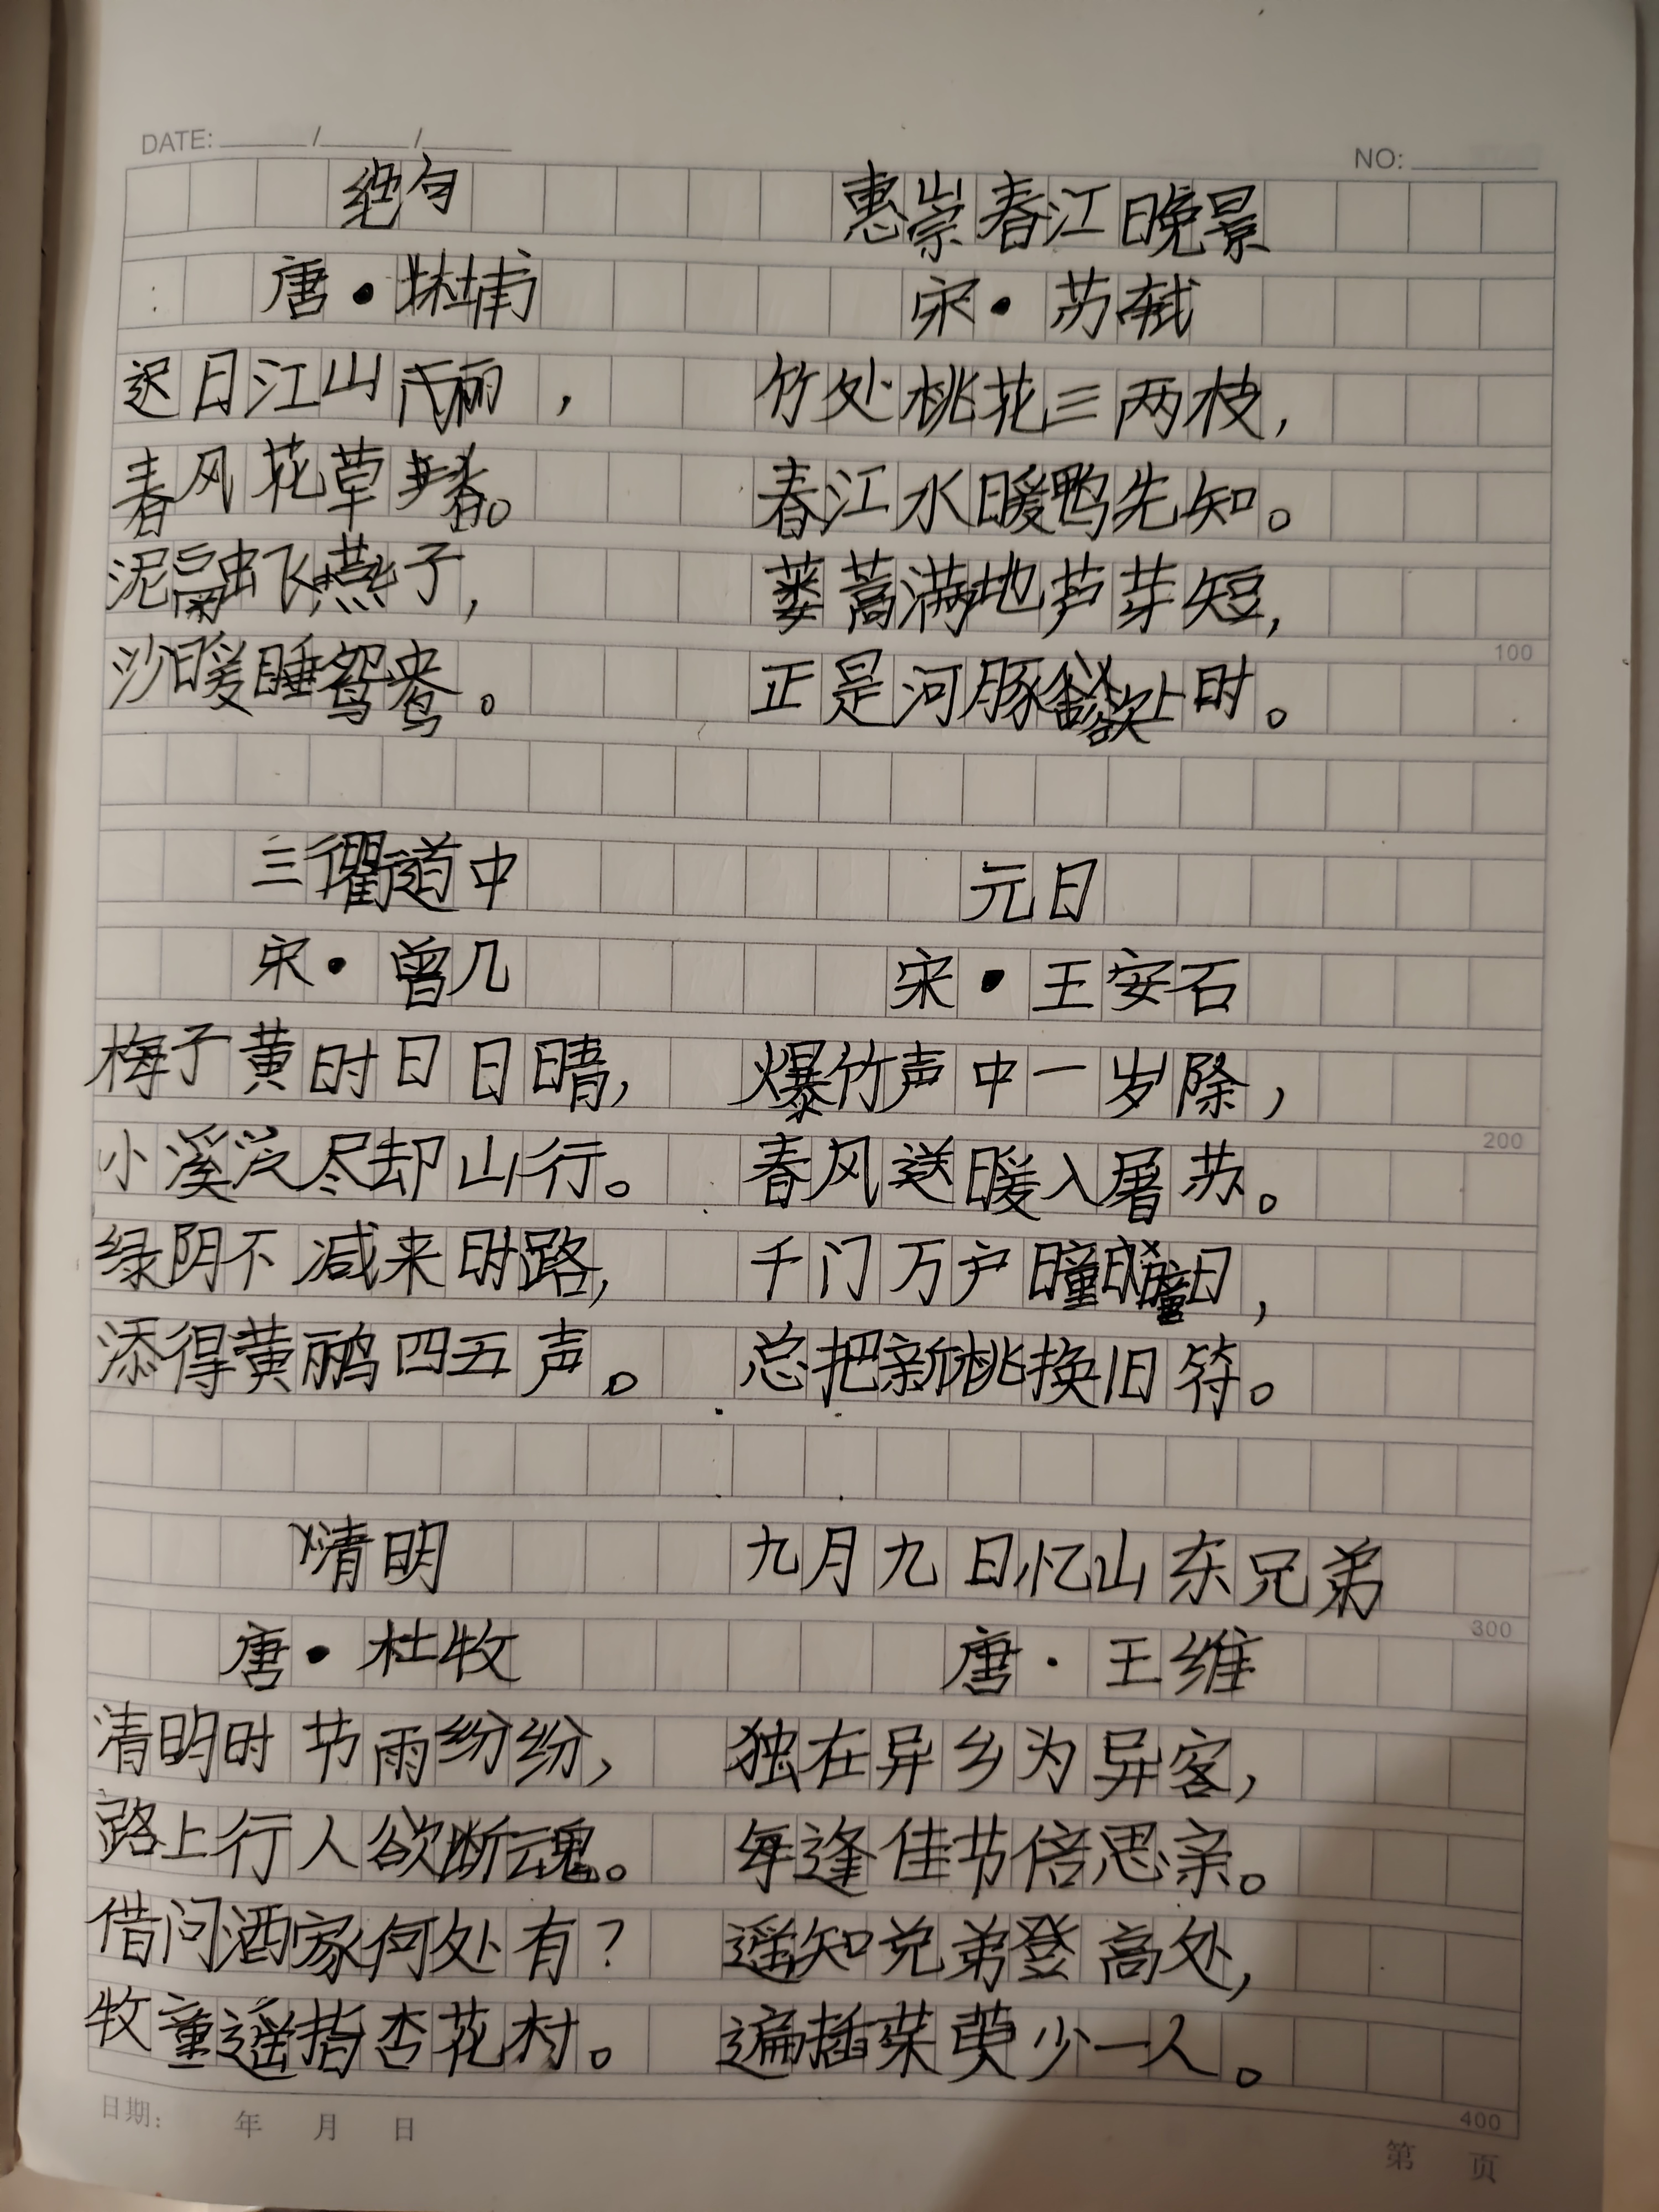 DATE: / /
NO:
绝句
唐·杜甫
迟日江山丽，
春风花草香。
泥融飞燕子，
沙暖睡鸳鸯。
惠崇春江晚景
宋·苏轼
竹处桃花三两枝，
春江水暖鸭先知。
蒌蒿满地芦芽短，
正是河豚欲上时。
100
三衢道中
宋·曾几
梅子黄时日日晴，
小溪泛尽却山行。
绿阴不减来时路，
添得黄鹂四五声。
元日
宋·王安石
爆竹声中一岁除，
春风送暖入屠苏。
千门万户曈曈日，
总把新桃换旧符。
200
清明
唐·杜牧
清明时节雨纷纷，
路上行人欲断魂。
借问酒家何处有？
牧童遥指杏花村。
九月九日忆山东兄弟
唐·王维
独在异乡为异客，
每逢佳节倍思亲。
遥知兄弟登高处，
遍插茱萸少一人。
300
400
日期: 年 月 日
第 页